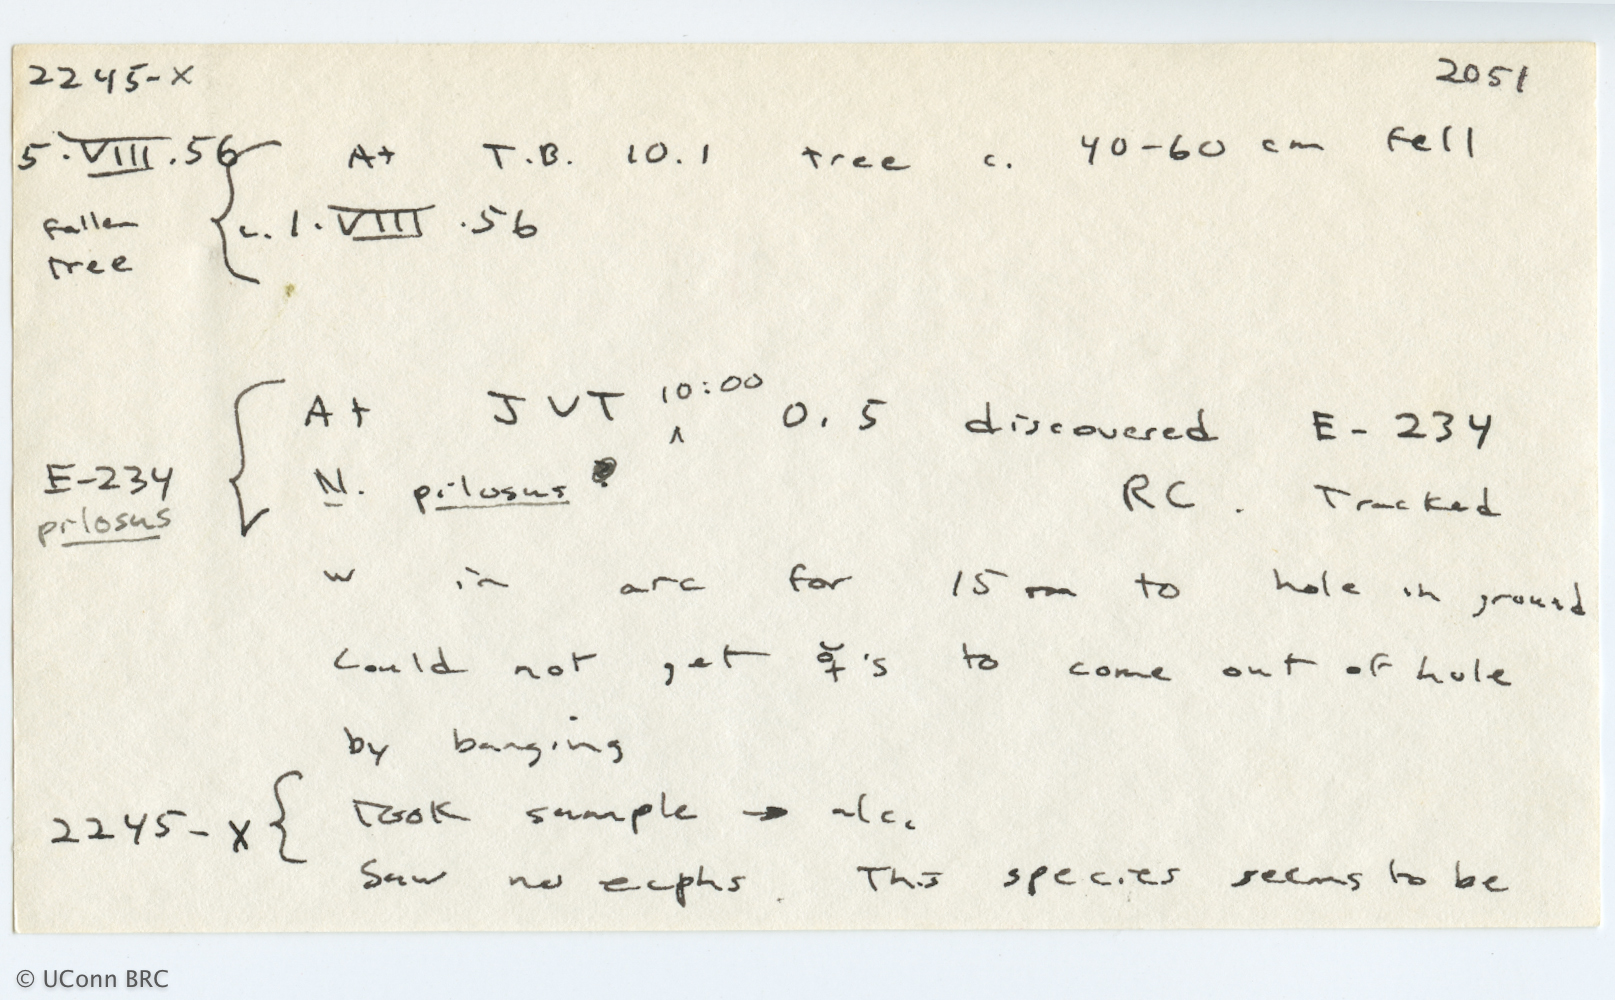 2245-X 2051
5.VIII.56 At T.B. 10.1 tree c. 40-60 cm fell
fallen c. 1.VIII.56
tree
At JVT 10:00 0.5 discovered E-234
E-234 N. pilosus RC. Tracked
pilosus
w in arc for 15 m to hole in ground
Could not get ☿'s to come out of hole
by banging
2245-X Took sample → alc.
Saw no ecphs. This species seems to be
© UConn BRC